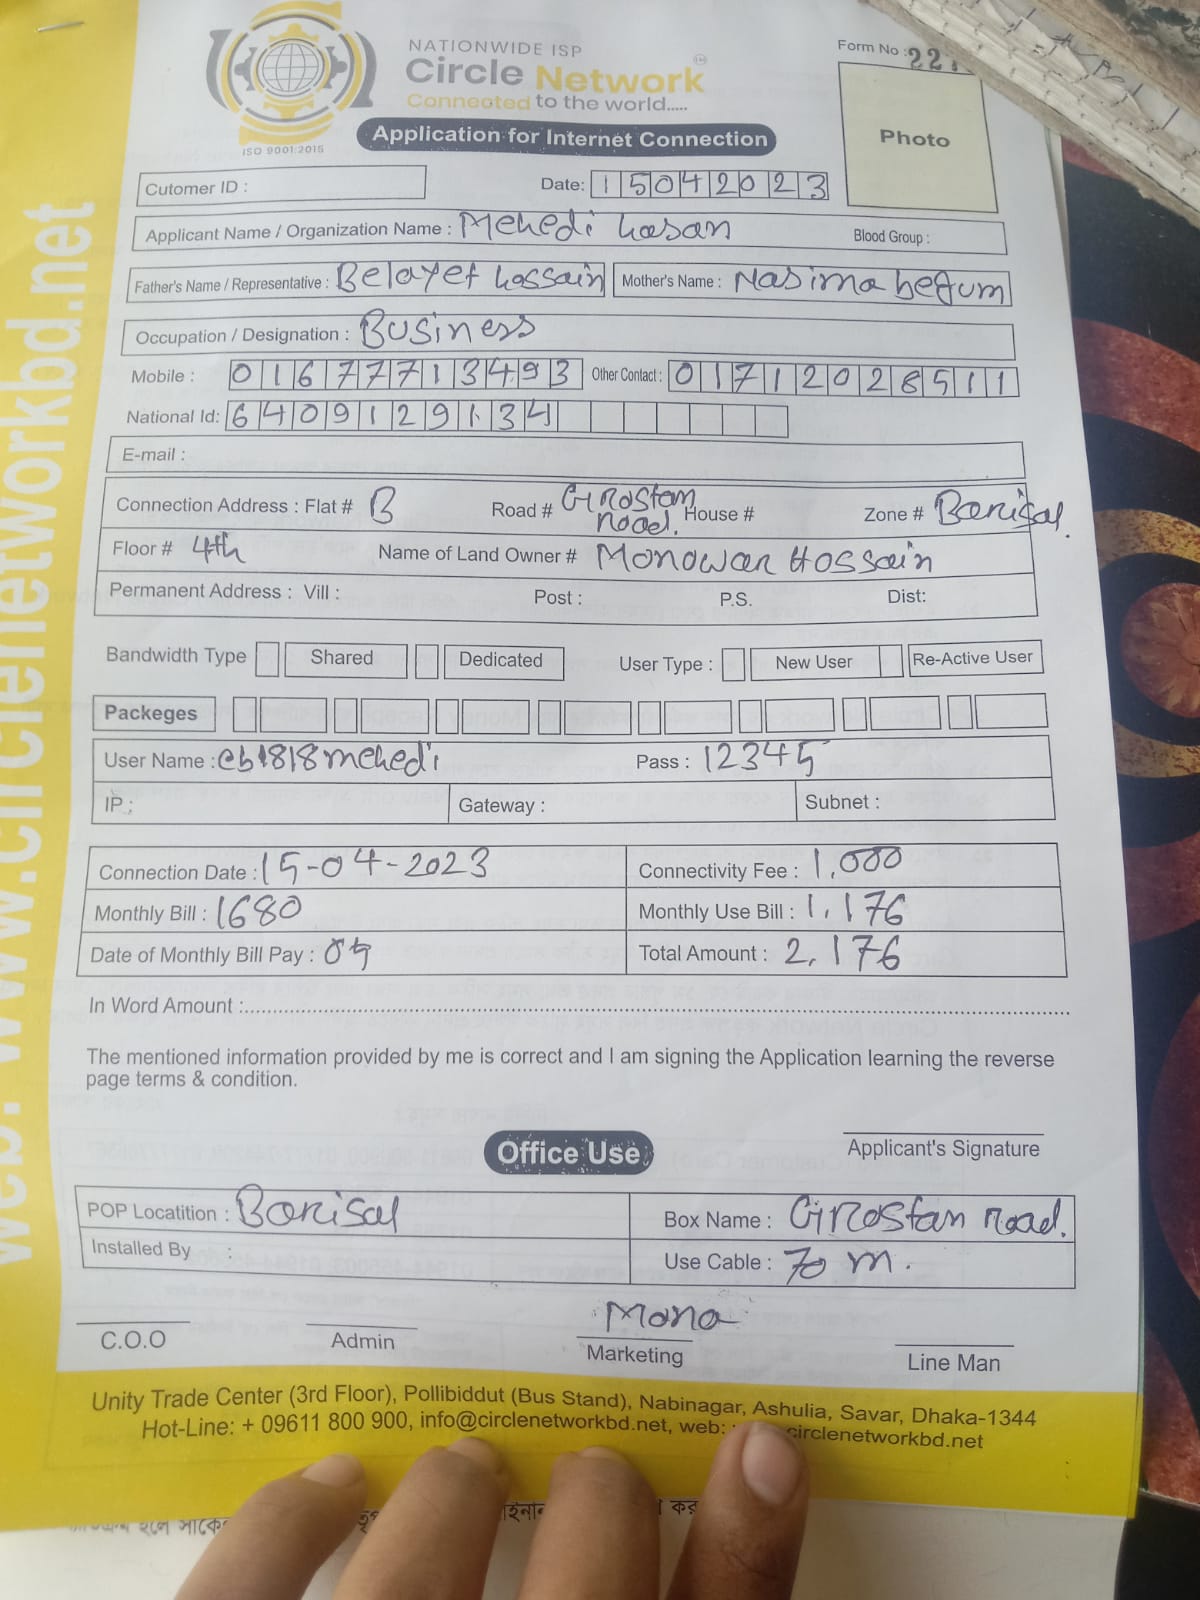 NATIONWIDE ISP
Circle Network
Connected to the world.....
ISO 9001:2015
Form No :
Photo
Application for Internet Connection
Cutomer ID :
Date: 15042023
Applicant Name / Organization Name : Mehedi hasan Blood Group :
Father's Name / Representative : Belayet hossain Mother's Name : Nasima begum
Occupation / Designation : Business
Mobile : 01677713493 Other Contact : 01712028511
National Id: 6409129134
E-mail :
Connection Address : Flat # B Road # Girostan road. House # Zone # Barisal.
Floor # 4th Name of Land Owner # Monowar Hossain
Permanent Address : Vill : Post : P.S. Dist:
Bandwidth Type Shared Dedicated User Type : New User Re-Active User
Packeges
User Name : cb1818mehedi Pass : 12345
IP : Gateway : Subnet :
Connection Date : 15-04-2023 Connectivity Fee : 1,000
Monthly Bill : 1680 Monthly Use Bill : 1,176
Date of Monthly Bill Pay : Total Amount : 2,176
In Word Amount :
The mentioned information provided by me is correct and I am signing the Application learning the reverse
page terms & condition.
Applicant's Signature
Office Use
POP Locatition : Barisal Box Name : Girostan road.
Installed By : Use Cable : 70 m.
Mona
C.O.O Admin Marketing Line Man
Unity Trade Center (3rd Floor), Pollibiddut (Bus Stand), Nabinagar, Ashulia, Savar, Dhaka-1344
Hot-Line: + 09611 800 900, info@circlenetworkbd.net, web: circlenetworkbd.net
web: www.circlenetworkbd.net